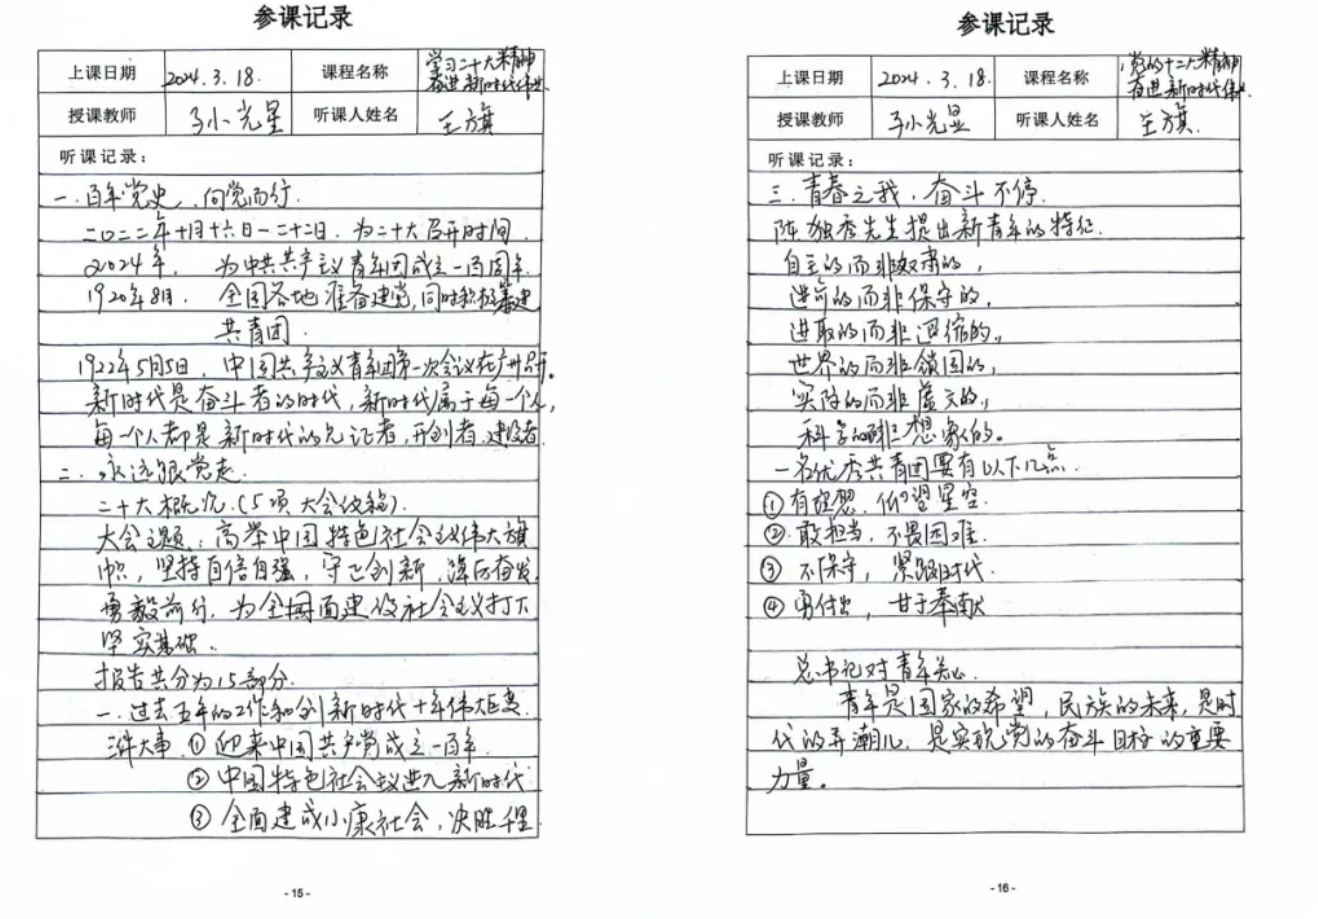 参课记录
上课日期 2024.3.18. 课程名称 学习二十大精神
奋进新时代伟业
授课教师 孙光星 听课人姓名 王旗
听课记录：
一.百年党史，向党而行.
二〇二二年十月十六日一二十二日.为二十大召开时间.
2024年, 为中共共产主义青年团成立一百周年.
1920年8月. 全国各地准备建党,同时积极筹建
共青团.
1922年5月5日, 中国共产主义青年团第一次会议在广州召开。
新时代是奋斗者的时代,新时代属于每一个人,
每一个人都是新时代的见证者,开创者,建设者.
二.永远跟党走.
二十大概况.(5项大会议程).
大会主题：高举中国特色社会主义伟大旗
帜,坚持自信自强,守正创新,踔厉奋发,
勇毅前行,为全国面建设社会主义打下
坚实基础.
报告共分为15部分.
一.过去五年的工作和分 新时代十年伟大巨变.
三件大事.①迎来中国共产党成立一百年.
②中国特色社会主义进入新时代
③全面建成小康社会,决胜
-15-
参课记录
上课日期 2024.3.18. 课程名称 党的二十大精神
奋进新时代伟业
授课教师 孙光显 听课人姓名 王旗.
听课记录：
三.青春之我,奋斗不停.
陈独秀先生提出新青年的特征.
自主的而非奴隶的,
进步的而非保守的,
进取的而非退缩的,
世界的而非锁国的,
实际的而非虚文的,
科学的而非想象的。
一名优秀共青团要有以下几点.
①有理想,仰望星空.
②敢担当,不畏困难.
③不保守,紧跟时代.
④勇付出,甘于奉献
总书记对青年关心.
青年是国家的希望,民族的未来,是时
代的弄潮儿,是实现党的奋斗目标的重要
力量。
-16-